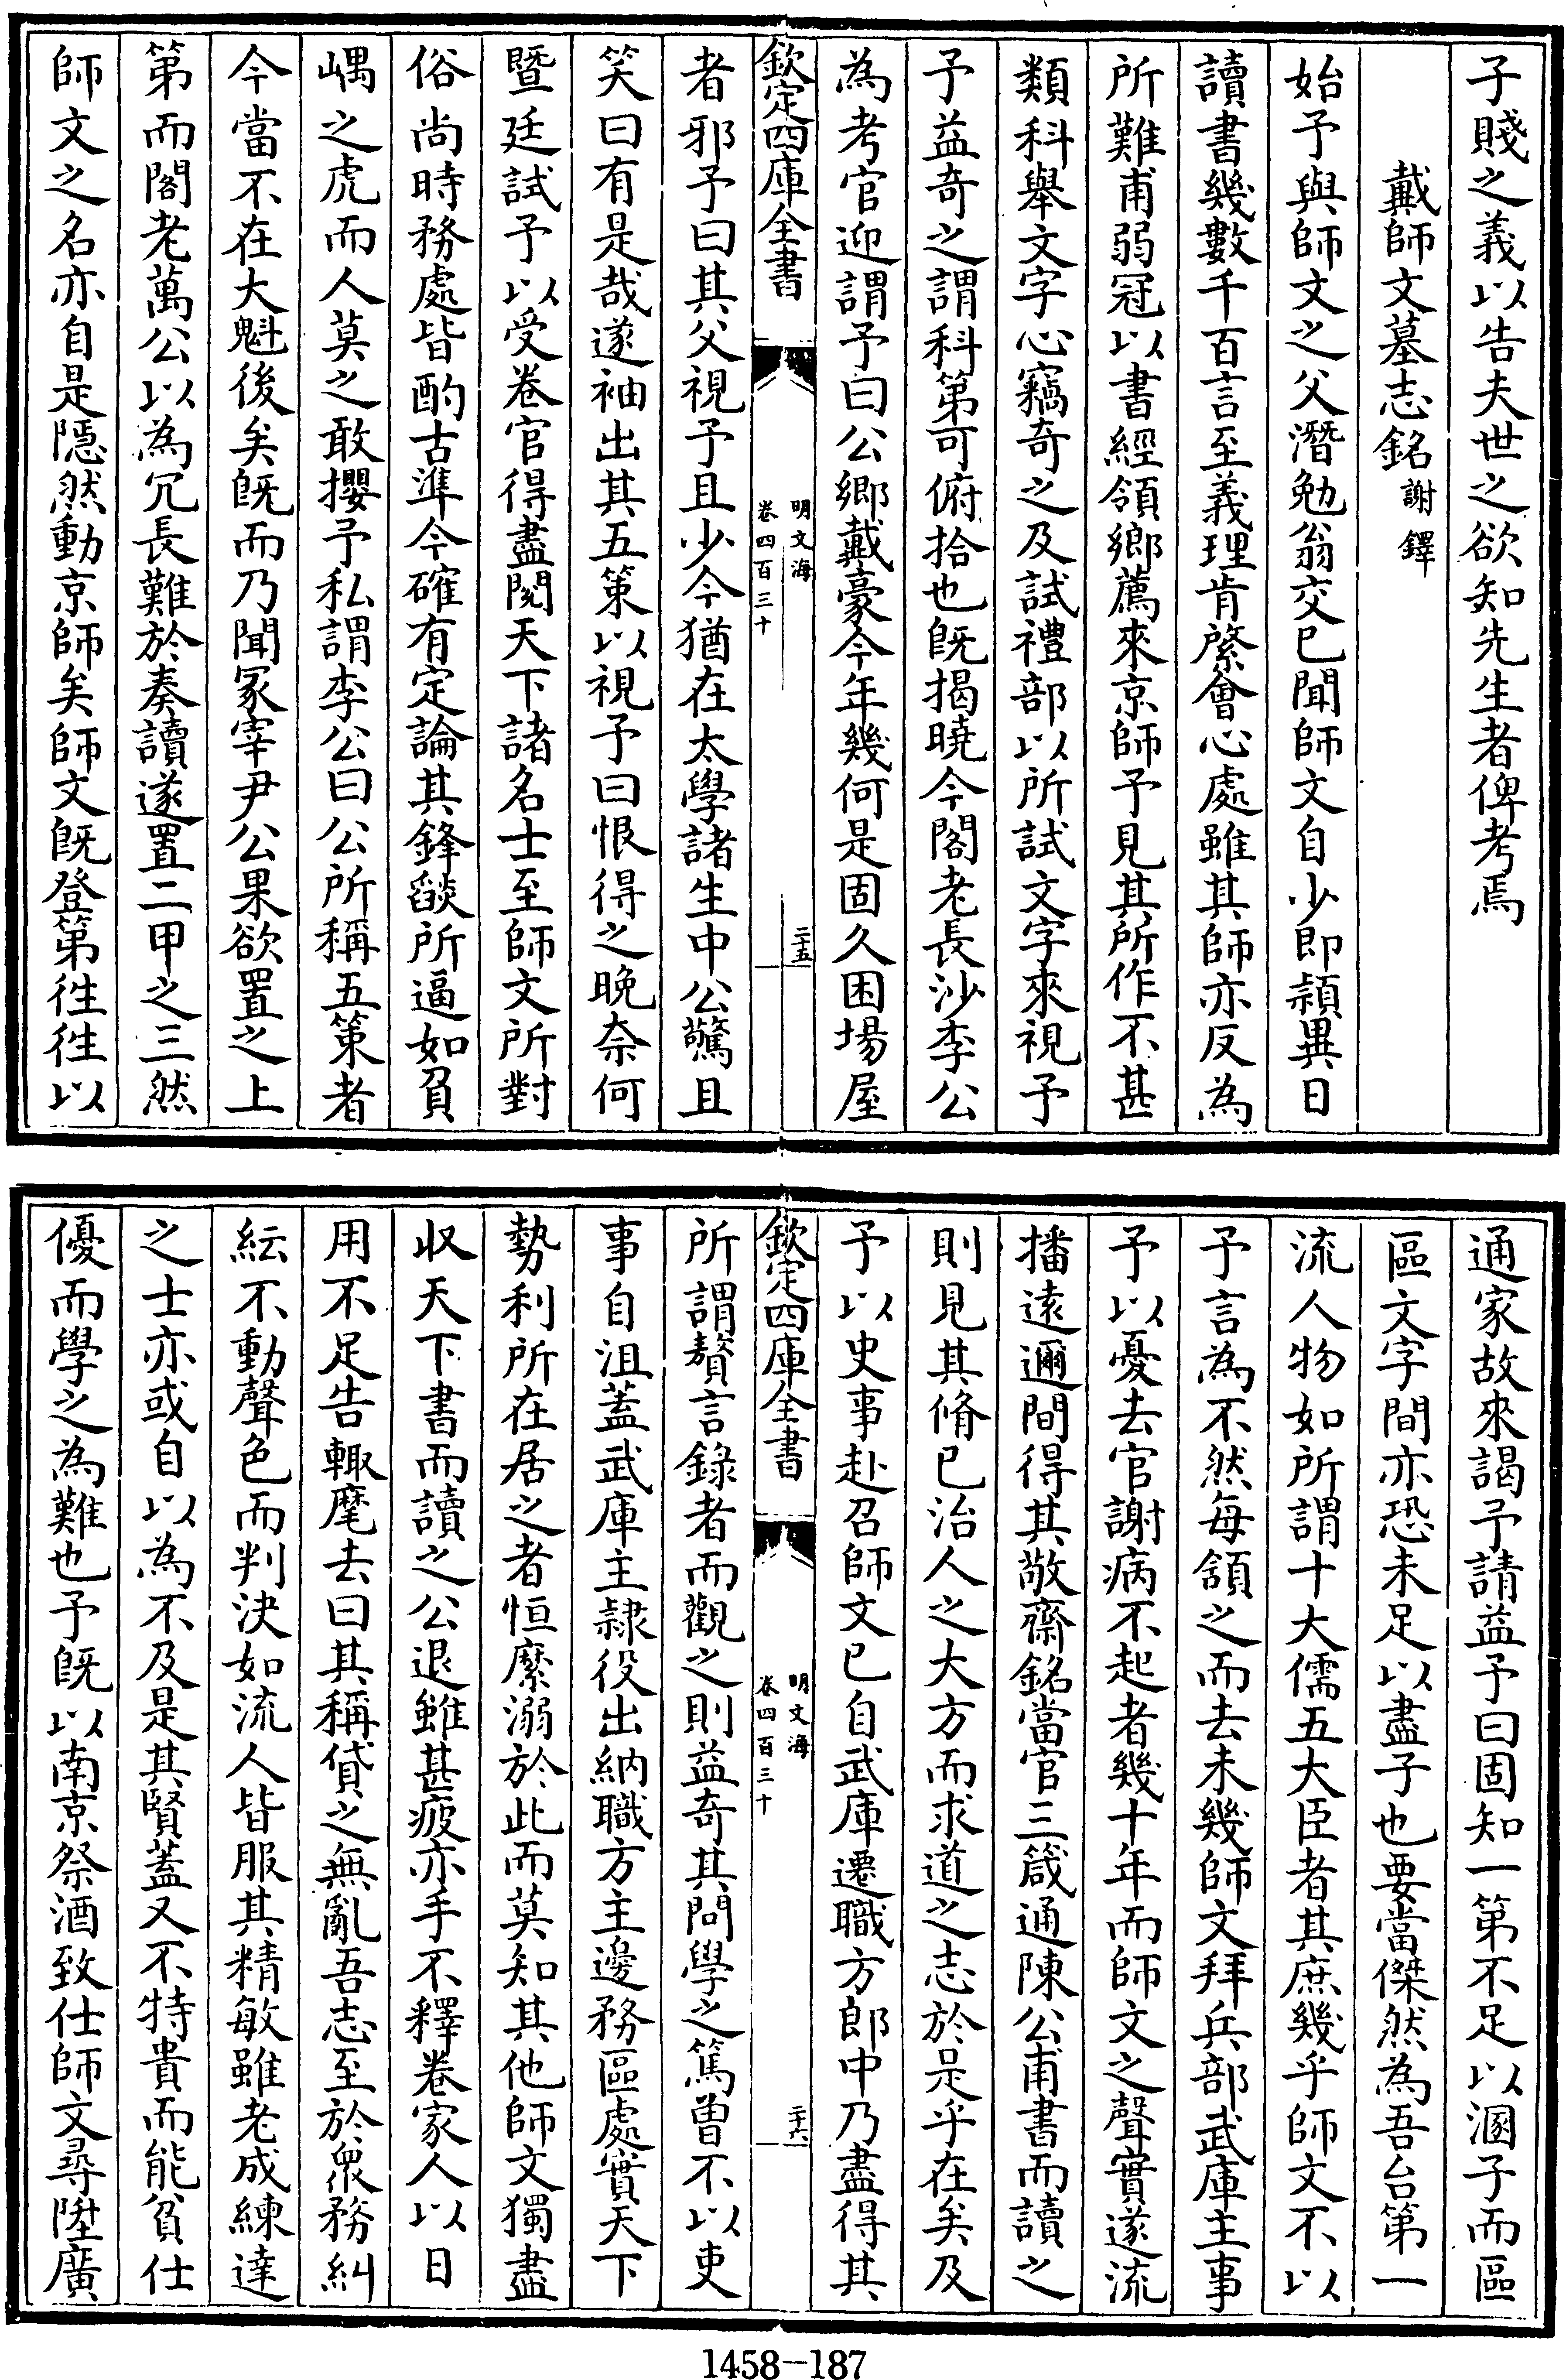 子賤之義以告夫世之欲知先生者俾考焉
戴師文墓志銘 謝鐸
始予與師文之父潛勉翁交已聞師文自少即頴異日
讀書幾數千百言至義理肯綮會心處雖其師亦反為
所難甫弱冠以書經領鄉薦來京師予見其所作不甚
類科舉文字心竊奇之及試禮部以所試文字來視予
予益奇之謂科第可俯拾也既揭曉今閣老長沙李公
為考官迎謂予曰公鄉戴豪今年幾何是固久困場屋
欽定四庫全書
明文海
卷四百三十
二十五
者邪予曰其父視予且少今猶在太學諸生中公驚且
笑曰有是哉遂袖出其五策以視予曰恨得之晚柰何
暨廷試予以受卷官得盡閱天下諸名士至師文所對
俗尚時務處皆酌古準今確有定論其鋒燄所逼如負
嵎之虎而人莫之敢攖予私謂李公曰公所稱五策者
今當不在大魁後矣既而乃聞冢宰尹公果欲置之上
第而閣老萬公以為冗長難於奏讀遂置二甲之三然
師文之名亦自是隱然動京師矣師文既登第徃徃以
通家故來謁予請益予曰固知一第不足以溷子而區
區文字間亦恐未足以盡子也要當傑然為吾台第一
流人物如所謂十大儒五大臣者其庶幾乎師文不以
予言為不然每頷之而去未幾師文拜兵部武庫主事
予以憂去官謝病不起者幾十年而師文之聲實遂流
播遠邇間得其敬齋銘當官三箴通陳公甫書而讀之
則見其脩已治人之大方而求道之志於是乎在矣及
予以史事赴召師文已自武庫遷職方郎中乃盡得其
欽定四庫全書
明文海
卷四百三十
二十六
所謂贅言錄者而觀之則益奇其問學之篤曽不以吏
事自沮蓋武庫主隷役出納職方主邊務區處實天下
勢利所在居之者恒縻溺於此而莫知其他師文獨盡
収天下書而讀之公退雖甚疲亦手不釋卷家人以日
用不足告輙麾去曰其稱貸之無亂吾志至於衆務糾
紜不動聲色而判决如流人皆服其精敏雖老成練達
之士亦或自以為不及是其賢蓋又不特貴而能貧仕
優而學之為難也予既以南京祭酒致仕師文尋陞廣
1458-187